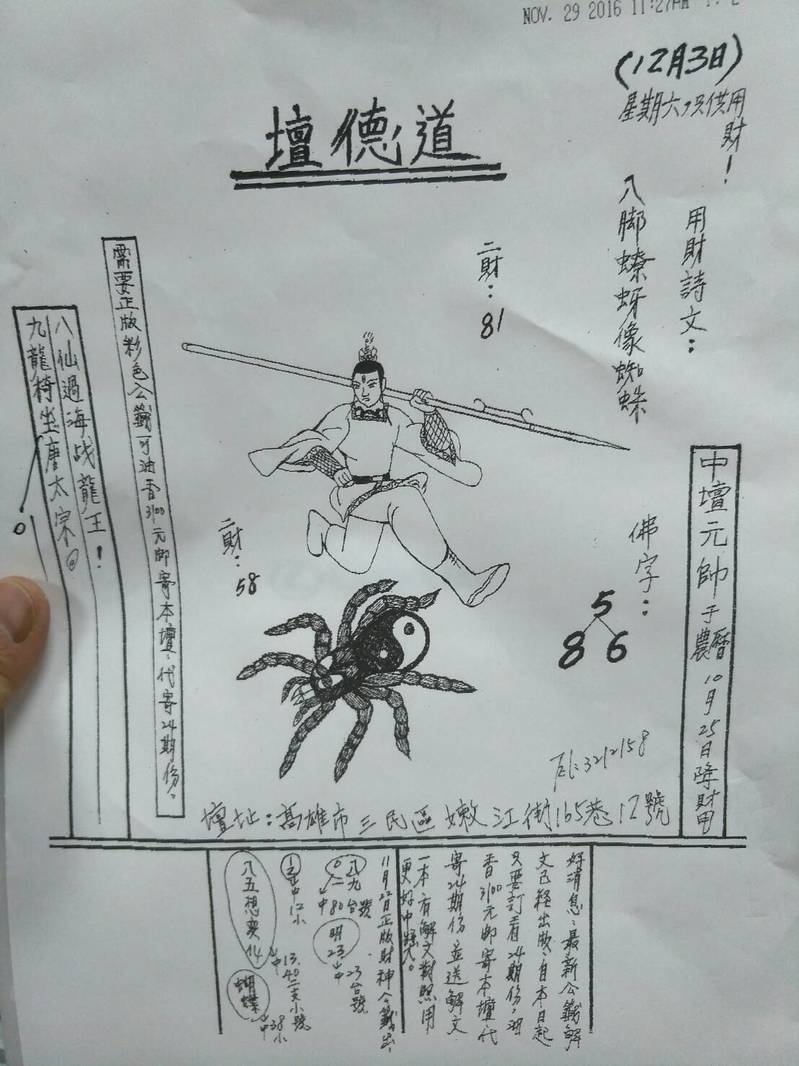 NOV. 29 2016 11:27AM
(12月3日)
星期六,只供用
財!
壇德道
用財詩文:
八脚蟟蚜像蜘蛛
二財:81
二財:58
佛字:
5
8 6
中壇元帥于農曆10月25日降財用
需要正版彩色公籤可油香3100元郵寄本壇,代寄24期份。
八仙過海战龍王!
九龍椅坐唐太宗@
0
Tel:3212158
壇址:高雄市三民區嫩江街165巷12號
好消息,最新公籤解
文已經出版,自本日起
只要訂看24期份,油
香3100元郵寄本壇代
寄24期份並送解文
一本,有解文對照用,
更好中獎。
11月22日正版財神公籤出
八九台號
中80
明23中
23台號
中12小
中13.40二支小號
八五想奕14
蝴蝶
中38小